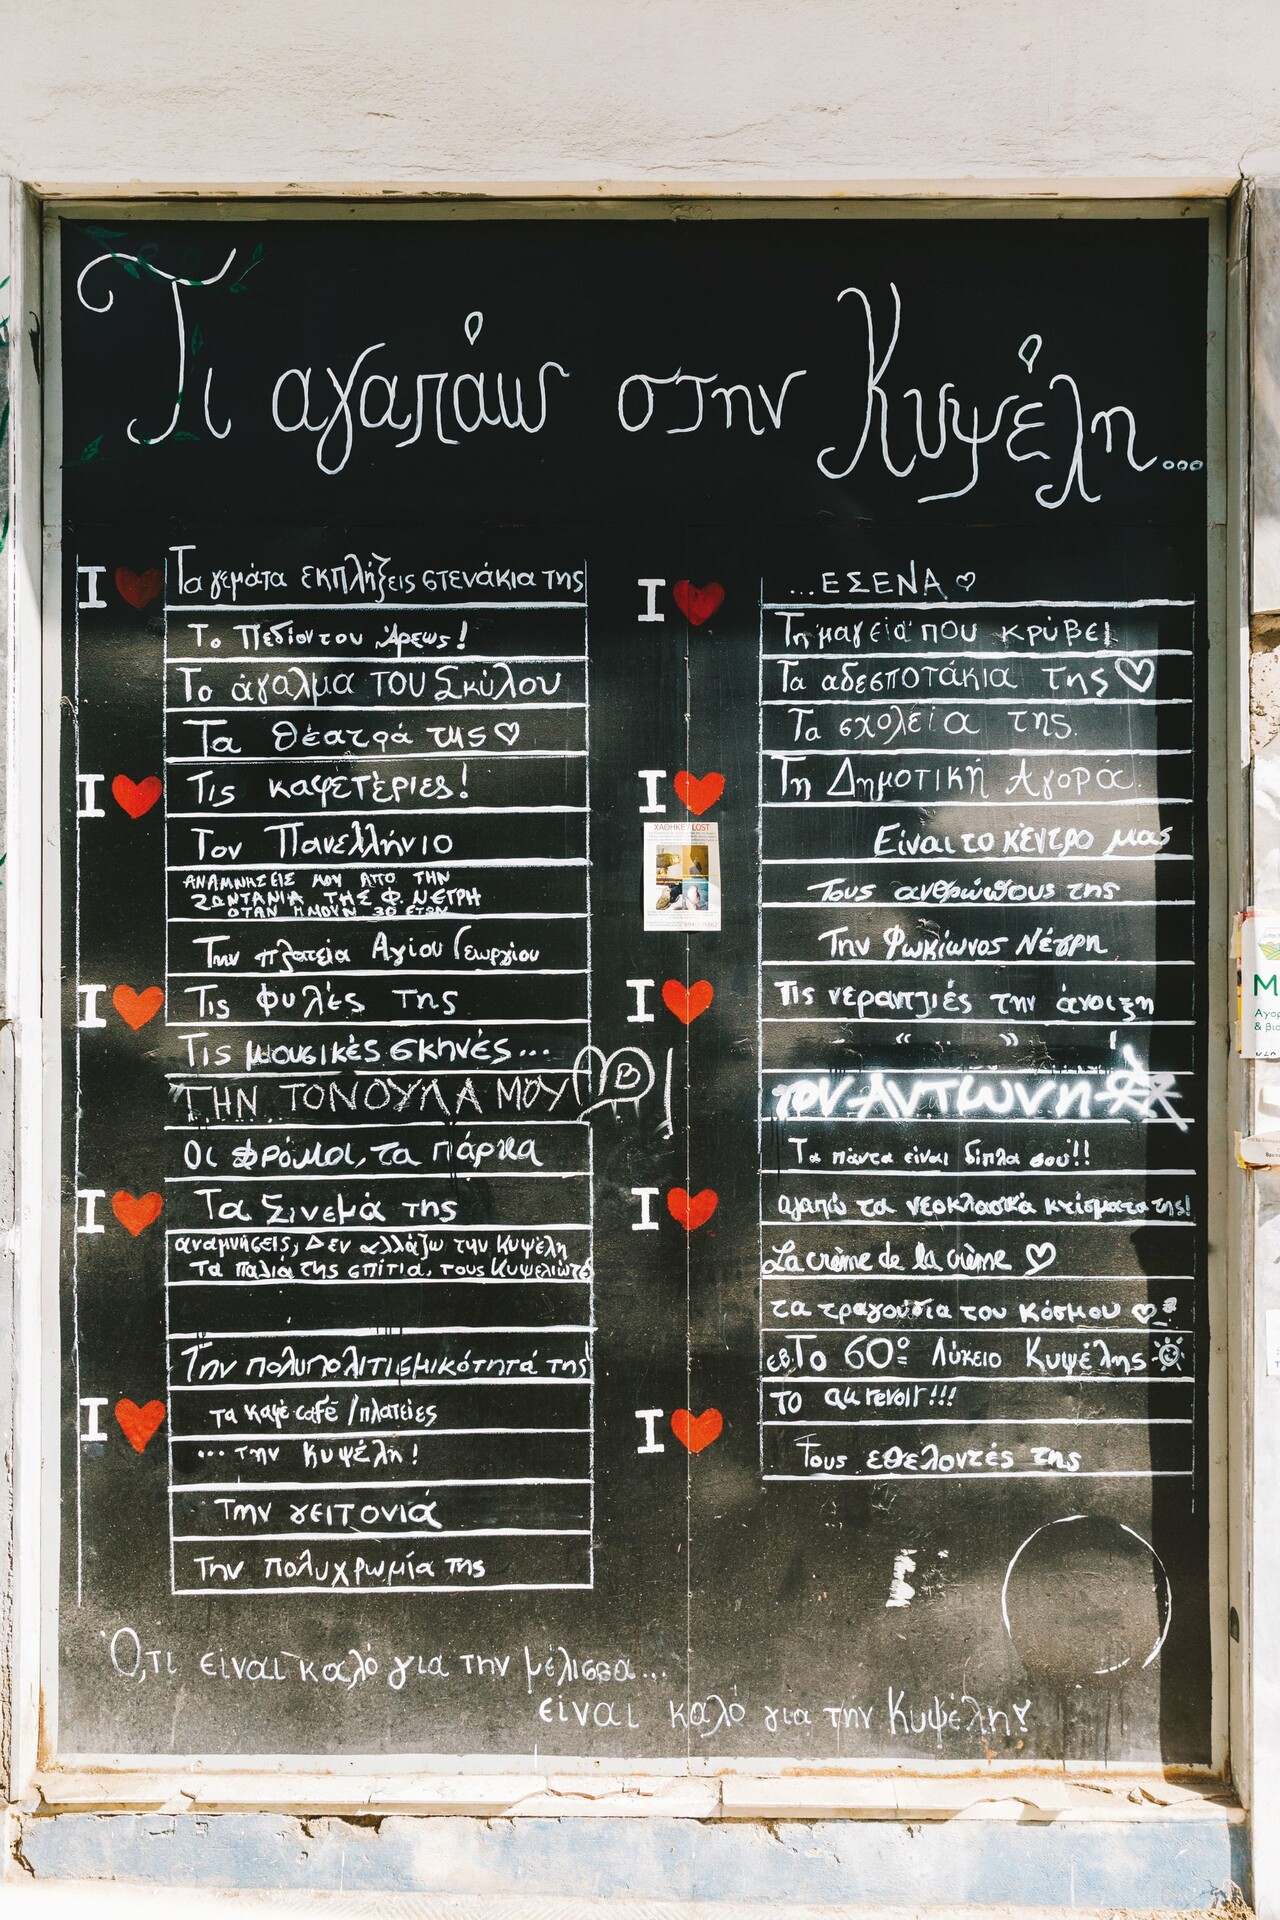 Τι αγαπάω στην Κυψέλη...
I
Τα γεμάτα εκπλήξεις στενάκια της
Το Πεδίον του Άρεως!
Το άγαλμα του Σκύλου
Τα θέατρά της
I
Τις καφετέριες!
Τον Πανελλήνιο
ΑΝΑΜΝΗΣΕΙΣ ΜΟΥ ΑΠΟ ΤΗΝ
ΖΩΝΤΑΝΙΑ ΤΗΣ Φ. ΝΕΓΡΗ
ΟΤΑΝ ΗΜΟΥΝ 30 ΕΤΩΝ
Την πλατεία Αγίου Γεωργίου
I
Τις φυλές της
Τις μουσικές σκηνές...
ΤΗΝ ΤΟΝΟΥΛΑ ΜΟΥ
Οι δρόμοι, τα πάρκα
I
Τα Σινεμά της
αναμνήσεις, Δεν αλλάζω την Κυψέλη
Τα παλιά της σπίτια, τους Κυψελιώτες
Την πολυπολιτισμικότητά της
I
τα καφέ café / πλατείες
... την Κυψέλη!
Την γειτονιά
Την πολυχρωμία της
I
...ΕΣΕΝΑ
Τη μαγεία που κρύβει
Τα αδεσποτάκια της
Τα σχολεία της.
I
Τη Δημοτική Αγορά.
Είναι το κέντρο μας
Τους ανθρώπους της
Την Φωκίωνος Νέγρη
I
Τις νεραντζιές την άνοιξη
" .. " !
τον Αντώνη
Τα πάντα είναι δίπλα σου!!
I
αγαπώ τα νεοκλασικά κτίσματα της!
La crème de la crème
τα τραγούδια του Κόσμου
Το 60º Λύκειο Κυψέλης
το au revoir!!!
I
Τους εθελοντές της
ΧΑΘΗΚΕ / LOST
Ό,τι είναι καλό για την μέλισσα...
είναι καλό για την Κυψέλη!